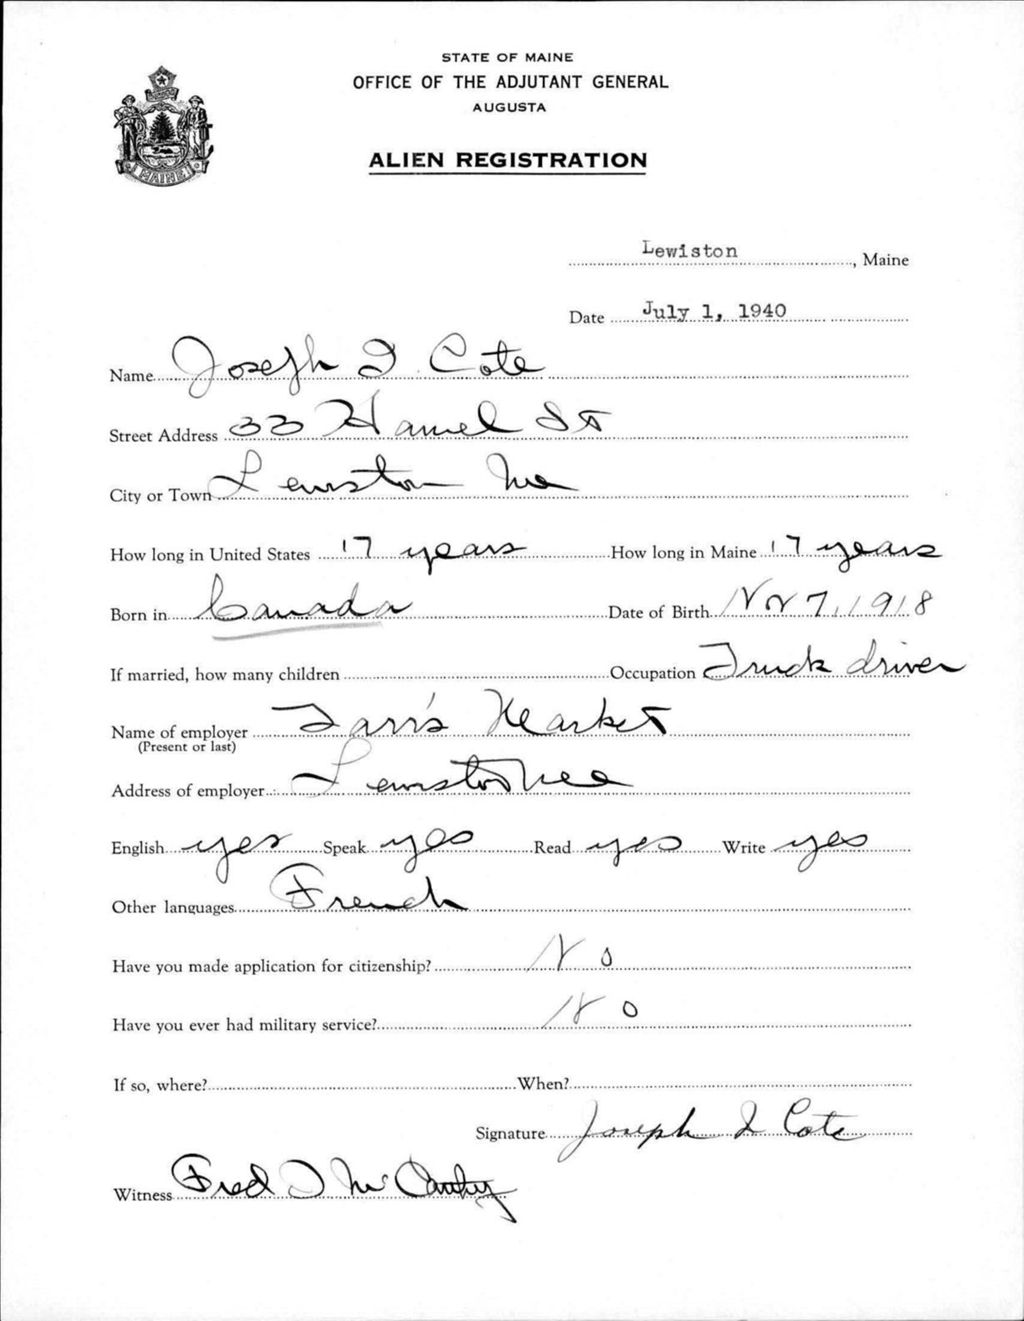 STATE OF MAINE
OFFICE OF THE ADJUTANT GENERAL
AUGUSTA
MAINE
ALIEN REGISTRATION
Lewiston, Maine
Date July 1, 1940
Name Joseph I Cote
Street Address 33 Hamel St
City or Town Lewiston Me
How long in United States 17 years How long in Maine 17 years
Born in Canada Date of Birth Nov 7, 1918
If married, how many children Occupation Truck driver
Name of employer Market
(Present or last)
Address of employer Lewiston Me
English yes Speak yes Read yes Write yes
Other languages French
Have you made application for citizenship? No
Have you ever had military service? No
If so, where? When?
Signature Joseph I Cote
Witness Fred J McCarthy